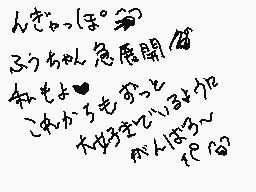 んぎゃっぽ°
ふうちゃん急展開
私もよ♥
これからもずっと
大好きでいるようにロ
がんばろ〜